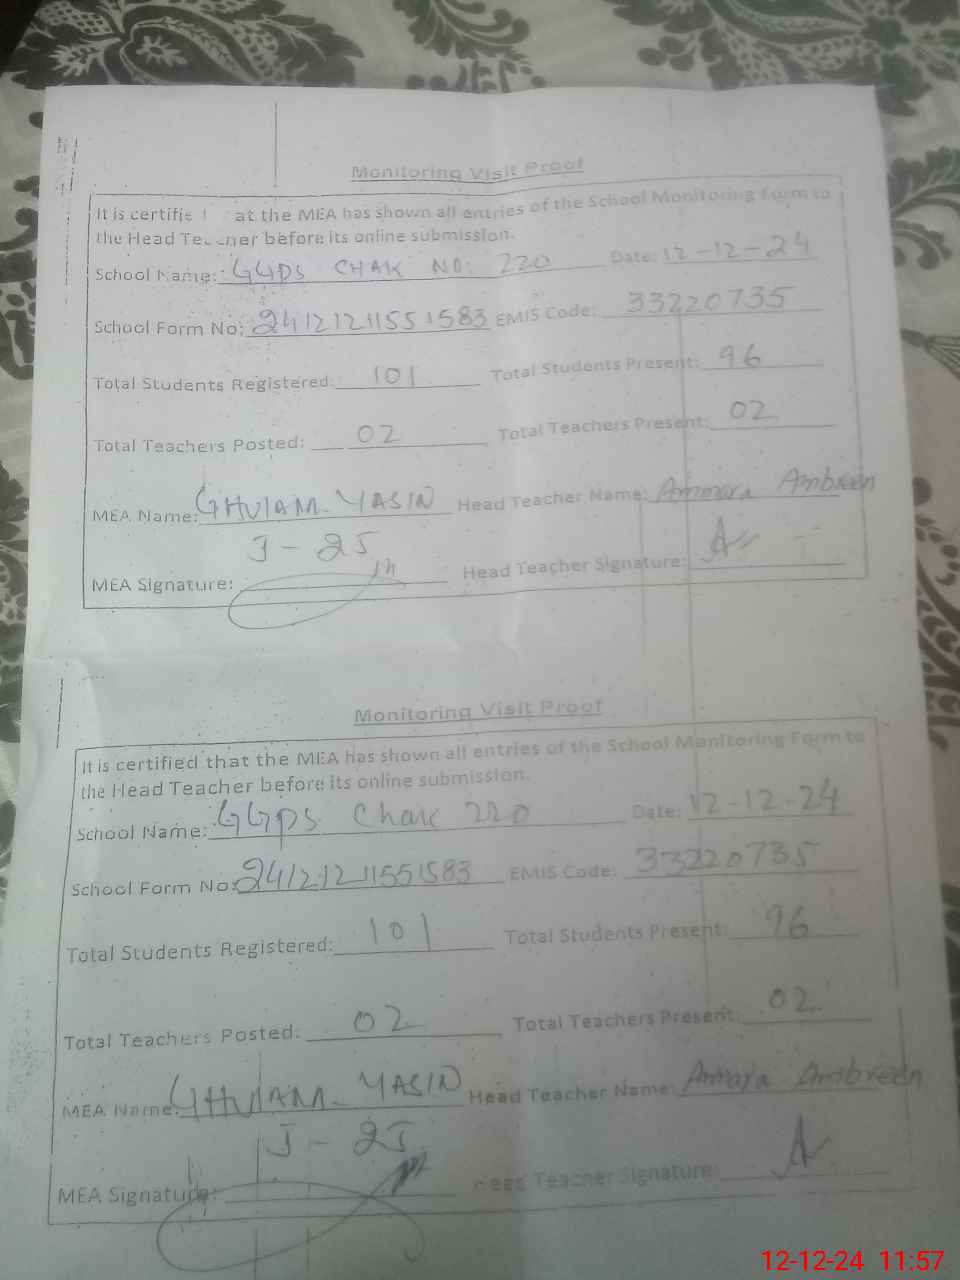 Monitoring Visit Proof
It is certifie at the MEA has shown all entries of the School Monitoring Form to
the Head Teacher before its online submission.
School Name: GGPS CHAK NO: 220 Date: 12-12-24
School Form No: 24121211551583 EMIS Code: 33220735
Total Students Registered: 101 Total Students Present: 96
Total Teachers Posted: 02 Total Teachers Present: 02
MEA Name: GHULAM YASIN Head Teacher Name: Ammara Ambreen
J-25
MEA Signature: Head Teacher Signature:
Monitoring Visit Proof
It is certified that the MEA has shown all entries of the School Monitoring Form to
the Head Teacher before its online submission.
School Name: GGPS Chak 220 Date: 12-12-24
School Form No: 24121211551583 EMIS Code: 33220735
Total Students Registered: 101 Total Students Present: 96
Total Teachers Posted: 02 Total Teachers Present: 02
MEA Name: GHULAM YASIN Head Teacher Name: Ammara Ambreen
J-25
MEA Signature: Head Teacher Signature:
12-12-24 11:57